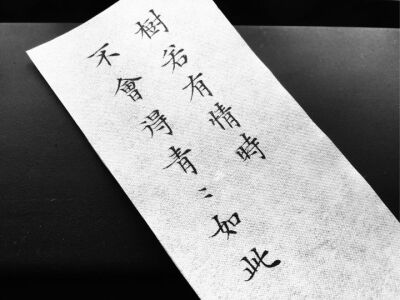 樹若有情時
不會得青⺀如此